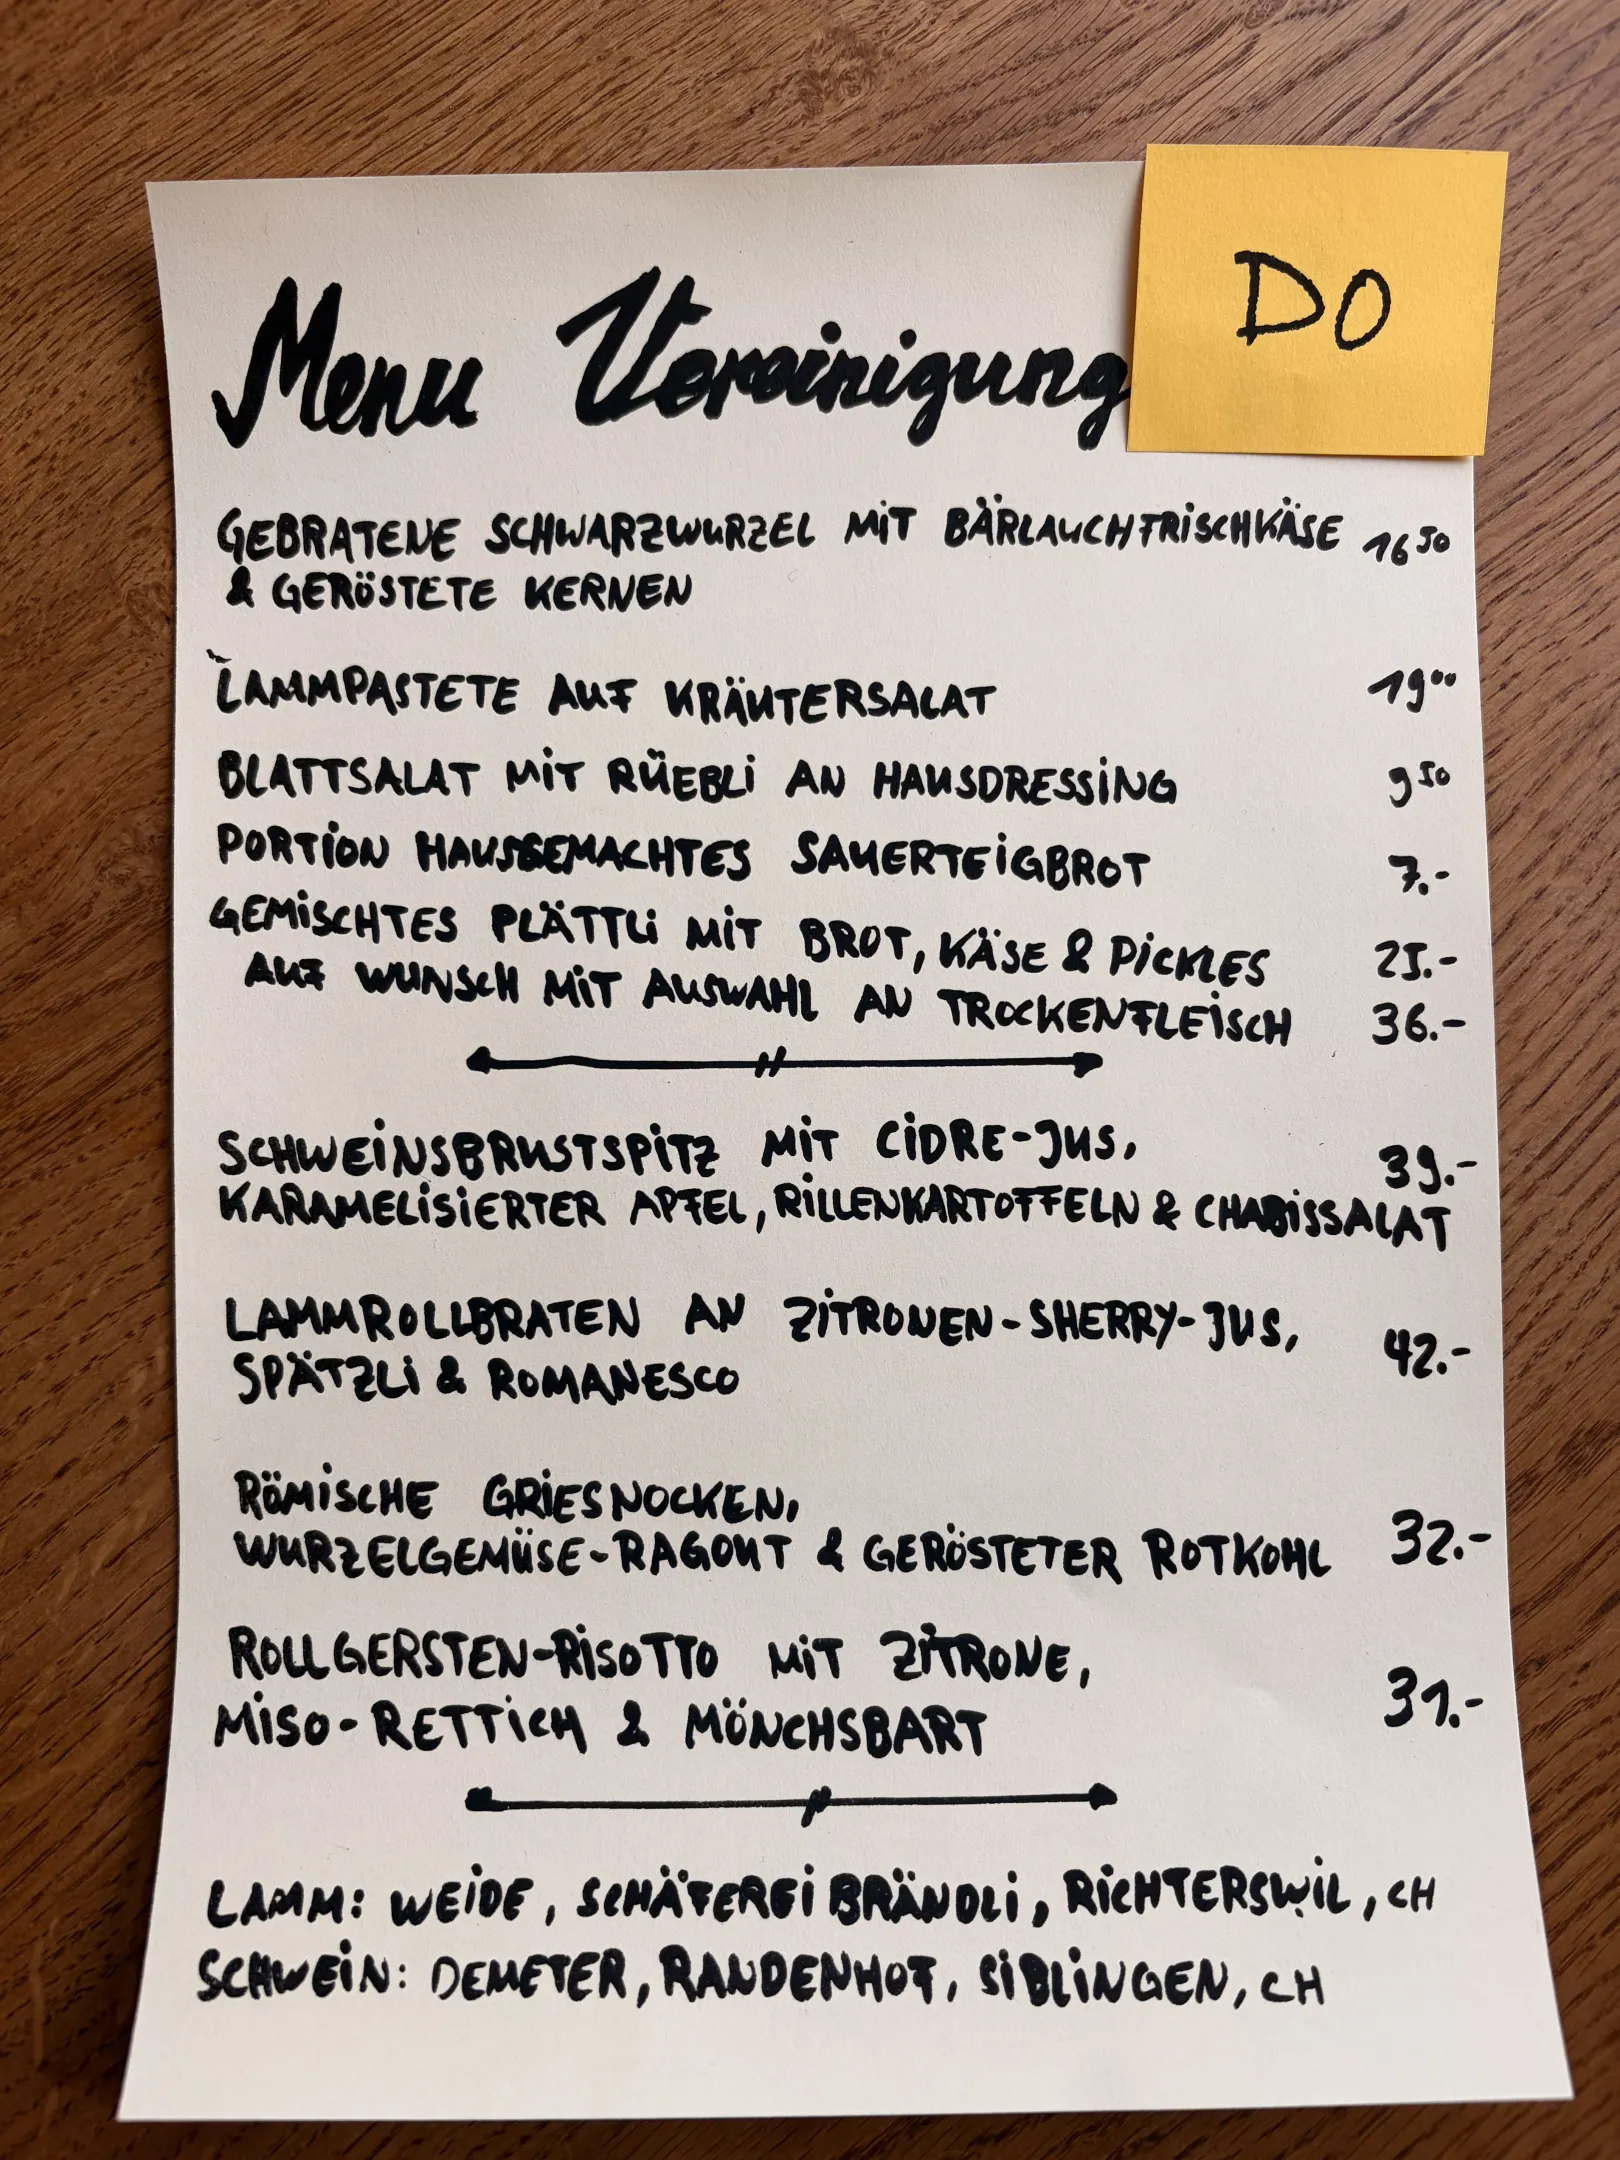 Menu Vereinigung
DO
GEBRATENE SCHWARZWURZEL MIT BÄRLAUCHFRISCHKÄSE 16 50
& GERÖSTETE KERNEN
LAMMPASTETE AUF KRÄUTERSALAT 19 00
BLATTSALAT MIT RÜEBLI AN HAUSDRESSING 9 50
PORTION HAUSGEMACHTES SAUERTEIGBROT 7.-
GEMISCHTES PLÄTTLI MIT BROT, KÄSE & PICKLES 25.-
AUF WUNSCH MIT AUSWAHL AN TROCKENFLEISCH 36.-
SCHWEINSBRUSTSPITZ MIT CIDRE-JUS, 39.-
KARAMELISIERTER APFEL, RILLENKARTOFFELN & CHABISSALAT
LAMMROLLBRATEN AN ZITRONEN-SHERRY-JUS, 42.-
SPÄTZLI & ROMANESCO
RÖMISCHE GRIESNOCKEN,
WURZELGEMÜSE-RAGOUT & GERÖSTETER ROTKOHL 32.-
ROLLGERSTEN-RISOTTO MIT ZITRONE,
MISO-RETTICH & MÖNCHSBART 31.-
LAMM: WEIDE, SCHÄFEREI BRÄNDLI, RICHTERSWIL, CH
SCHWEIN: DEMETER, RANDENHOF, SIBLINGEN, CH